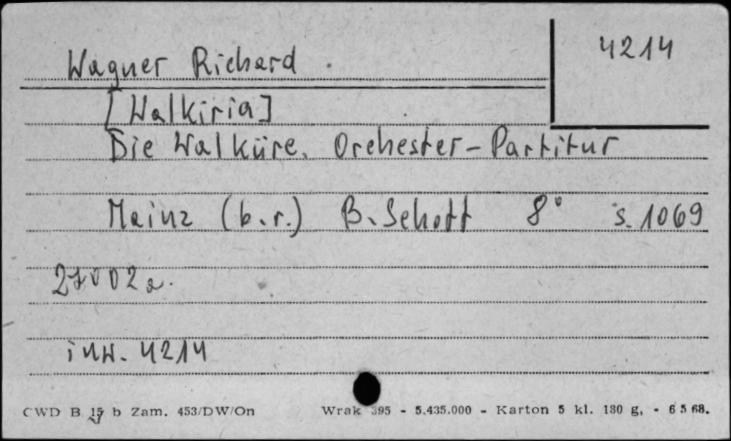 4214
Wagner Richard.
[Walkiria]
Die Walküre. Orchester-Partitur
Mainz (b.r.) B. Schott 8° s. 1069
27002a.
inw. 4214
CWD B 15 b Zam. 453/DW/On Wrak 395 - 5.435.000 - Karton 5 kl. 180 g, - 6 5 68.